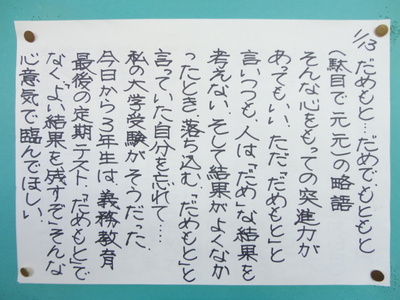 1/13
だめもと…だめで、もともと
(駄目で元元)の略語
そんな心をもっての突進力が
あってもいい。ただ「だめもと」と
言いつつも、人は「だめ」な結果を
考えない。そして結果がよくなか
ったとき、落ち込む。「だめもと」と
言っていた自分を忘れて……
私の大学受験がそうだった。
今日から3年生は、義務教育
最後の定期テスト。「だめもと」で
なく、「よい結果を残すぞ」そんな
心意気で臨んでほしい。